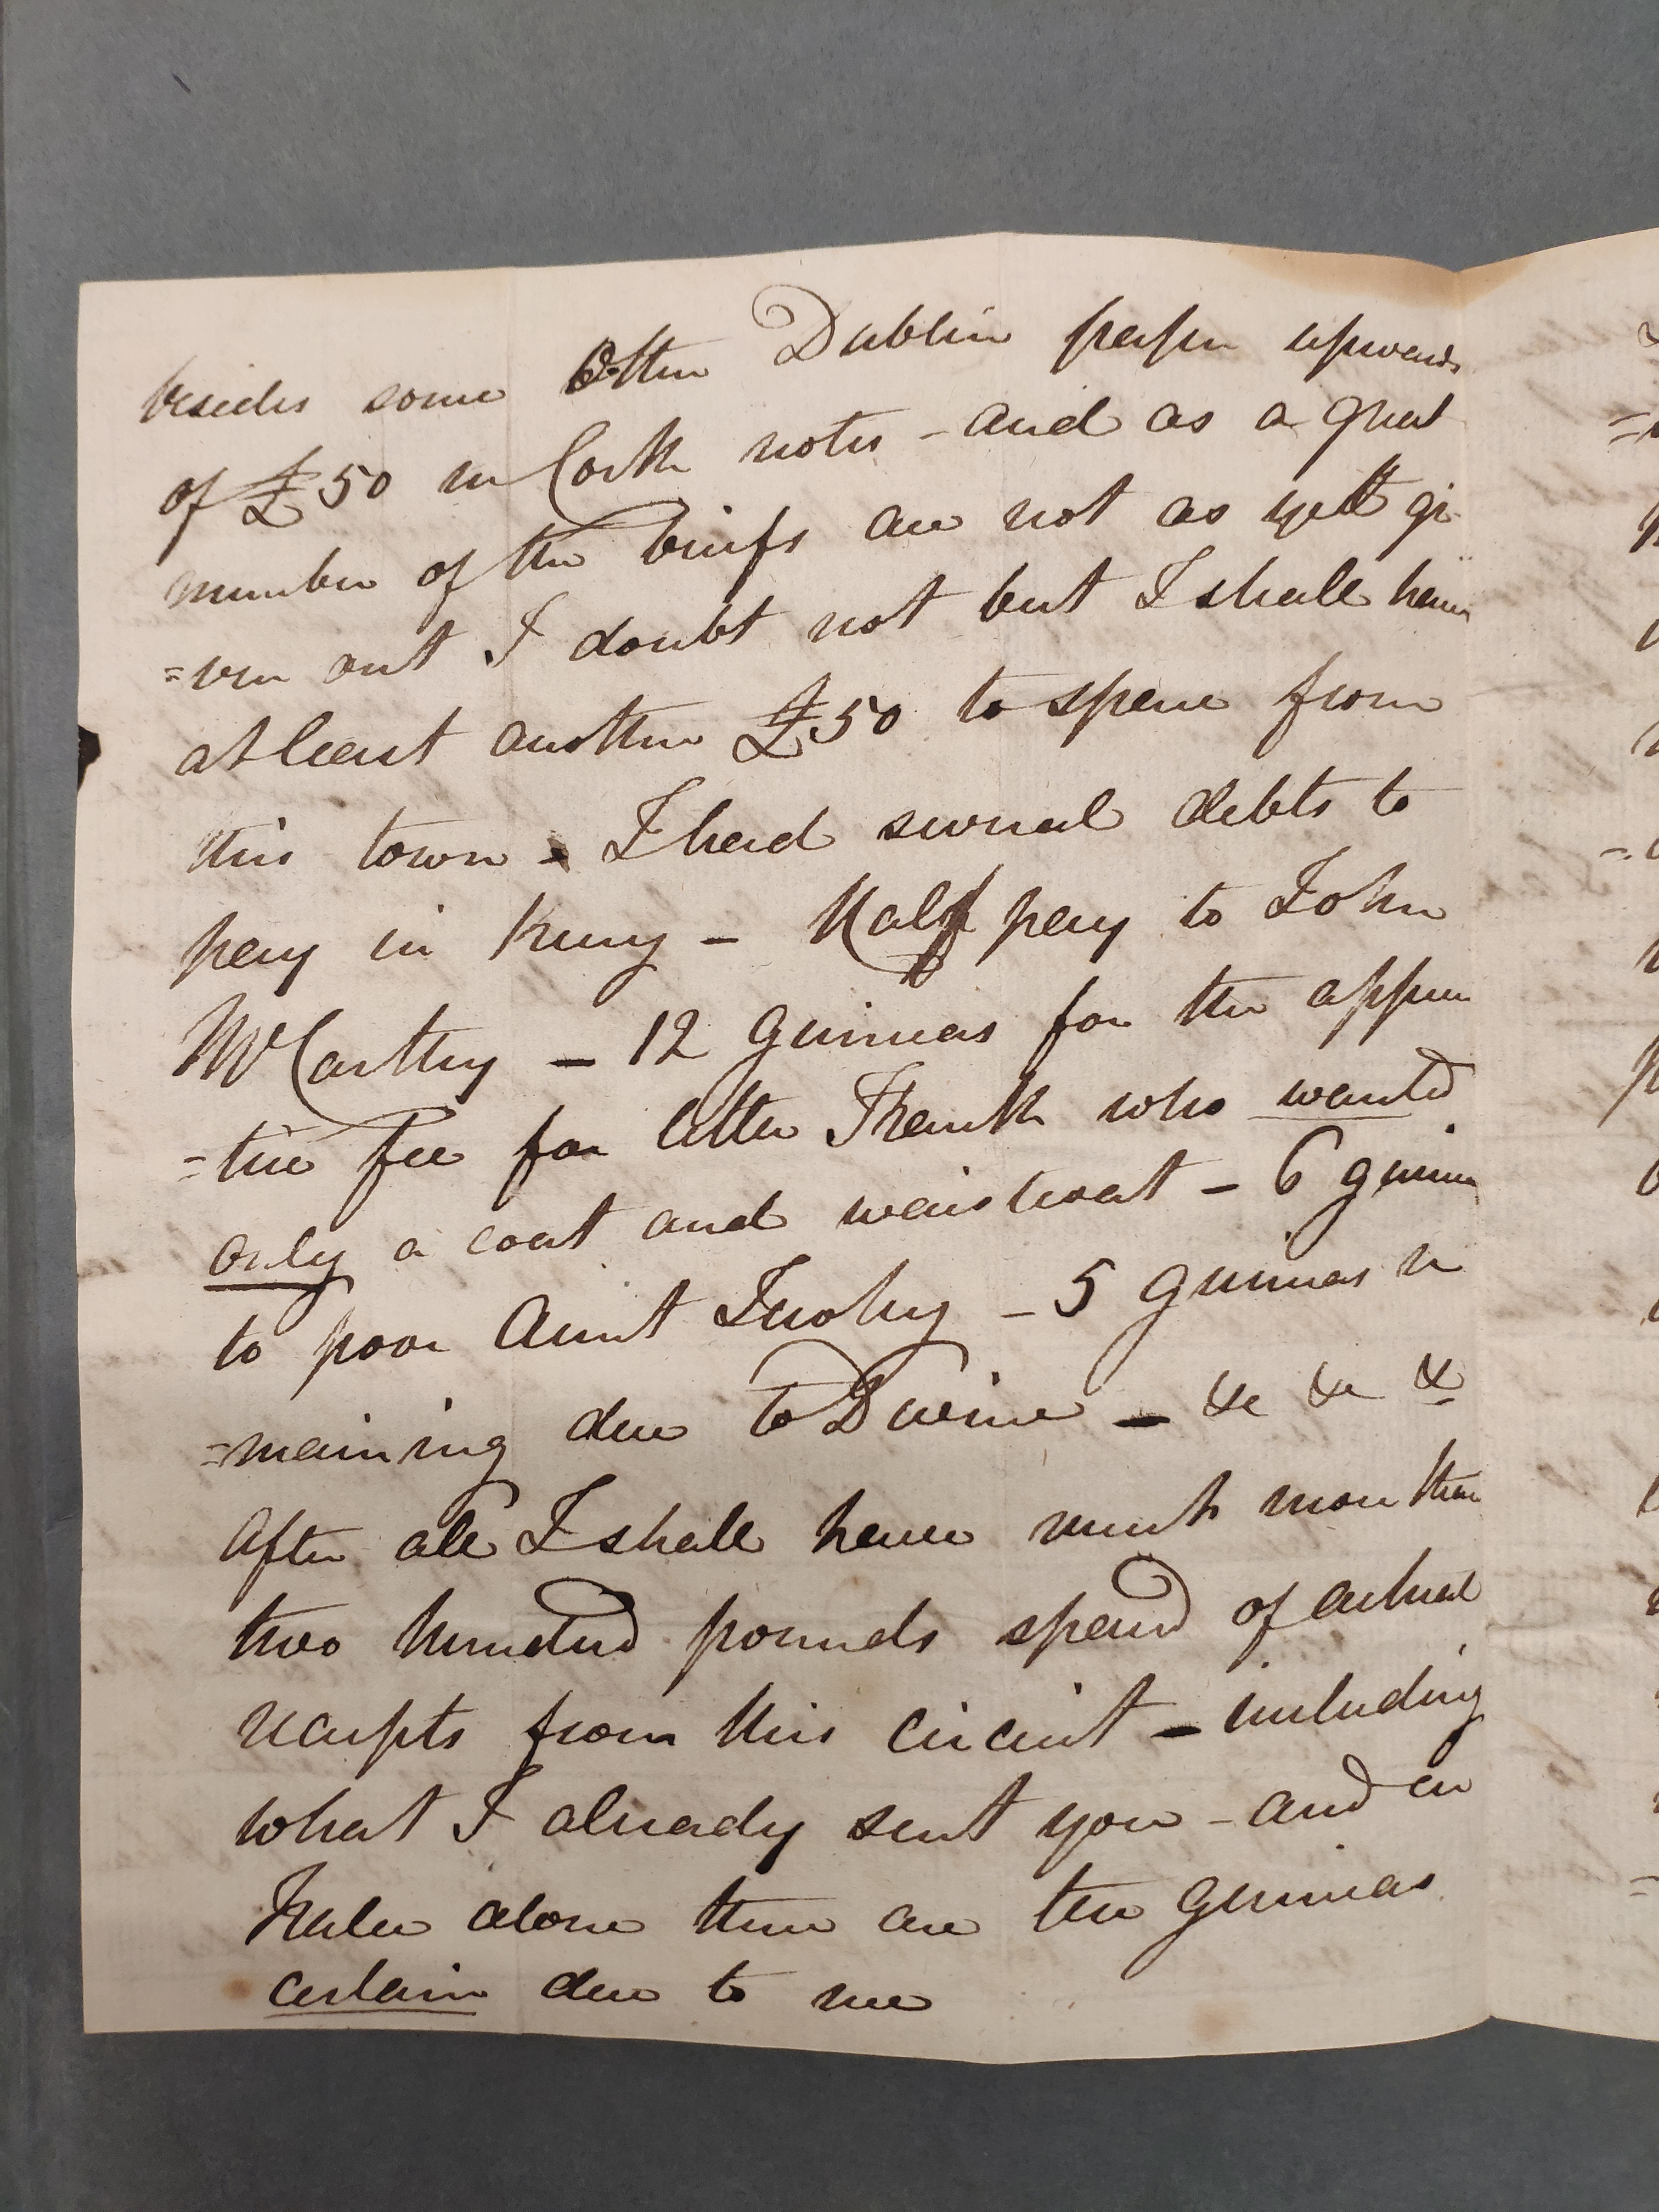 besides some other Dublin paper upwards
of £50 in Cork notes - and as a great
number of the briefs are not as yett gi
=ven out I doubt not but I shall have
at least another £50 to spare from
this town - I had several debts to
pay in Kerry - Half pay to John
McCarthy - 12 Guineas for the appren
=tice fee for little Frank who wanted
only a coat and waistcoat - 6 guineas
to poor Aunt - 5 Guineas re
=maining due to - &c &c &c
After all I shall have much more than
two hundred pounds spared of actual
receipts from this circuit - including
what I already sent you - and in
Tralee alone there are ten Guineas
certain due to me